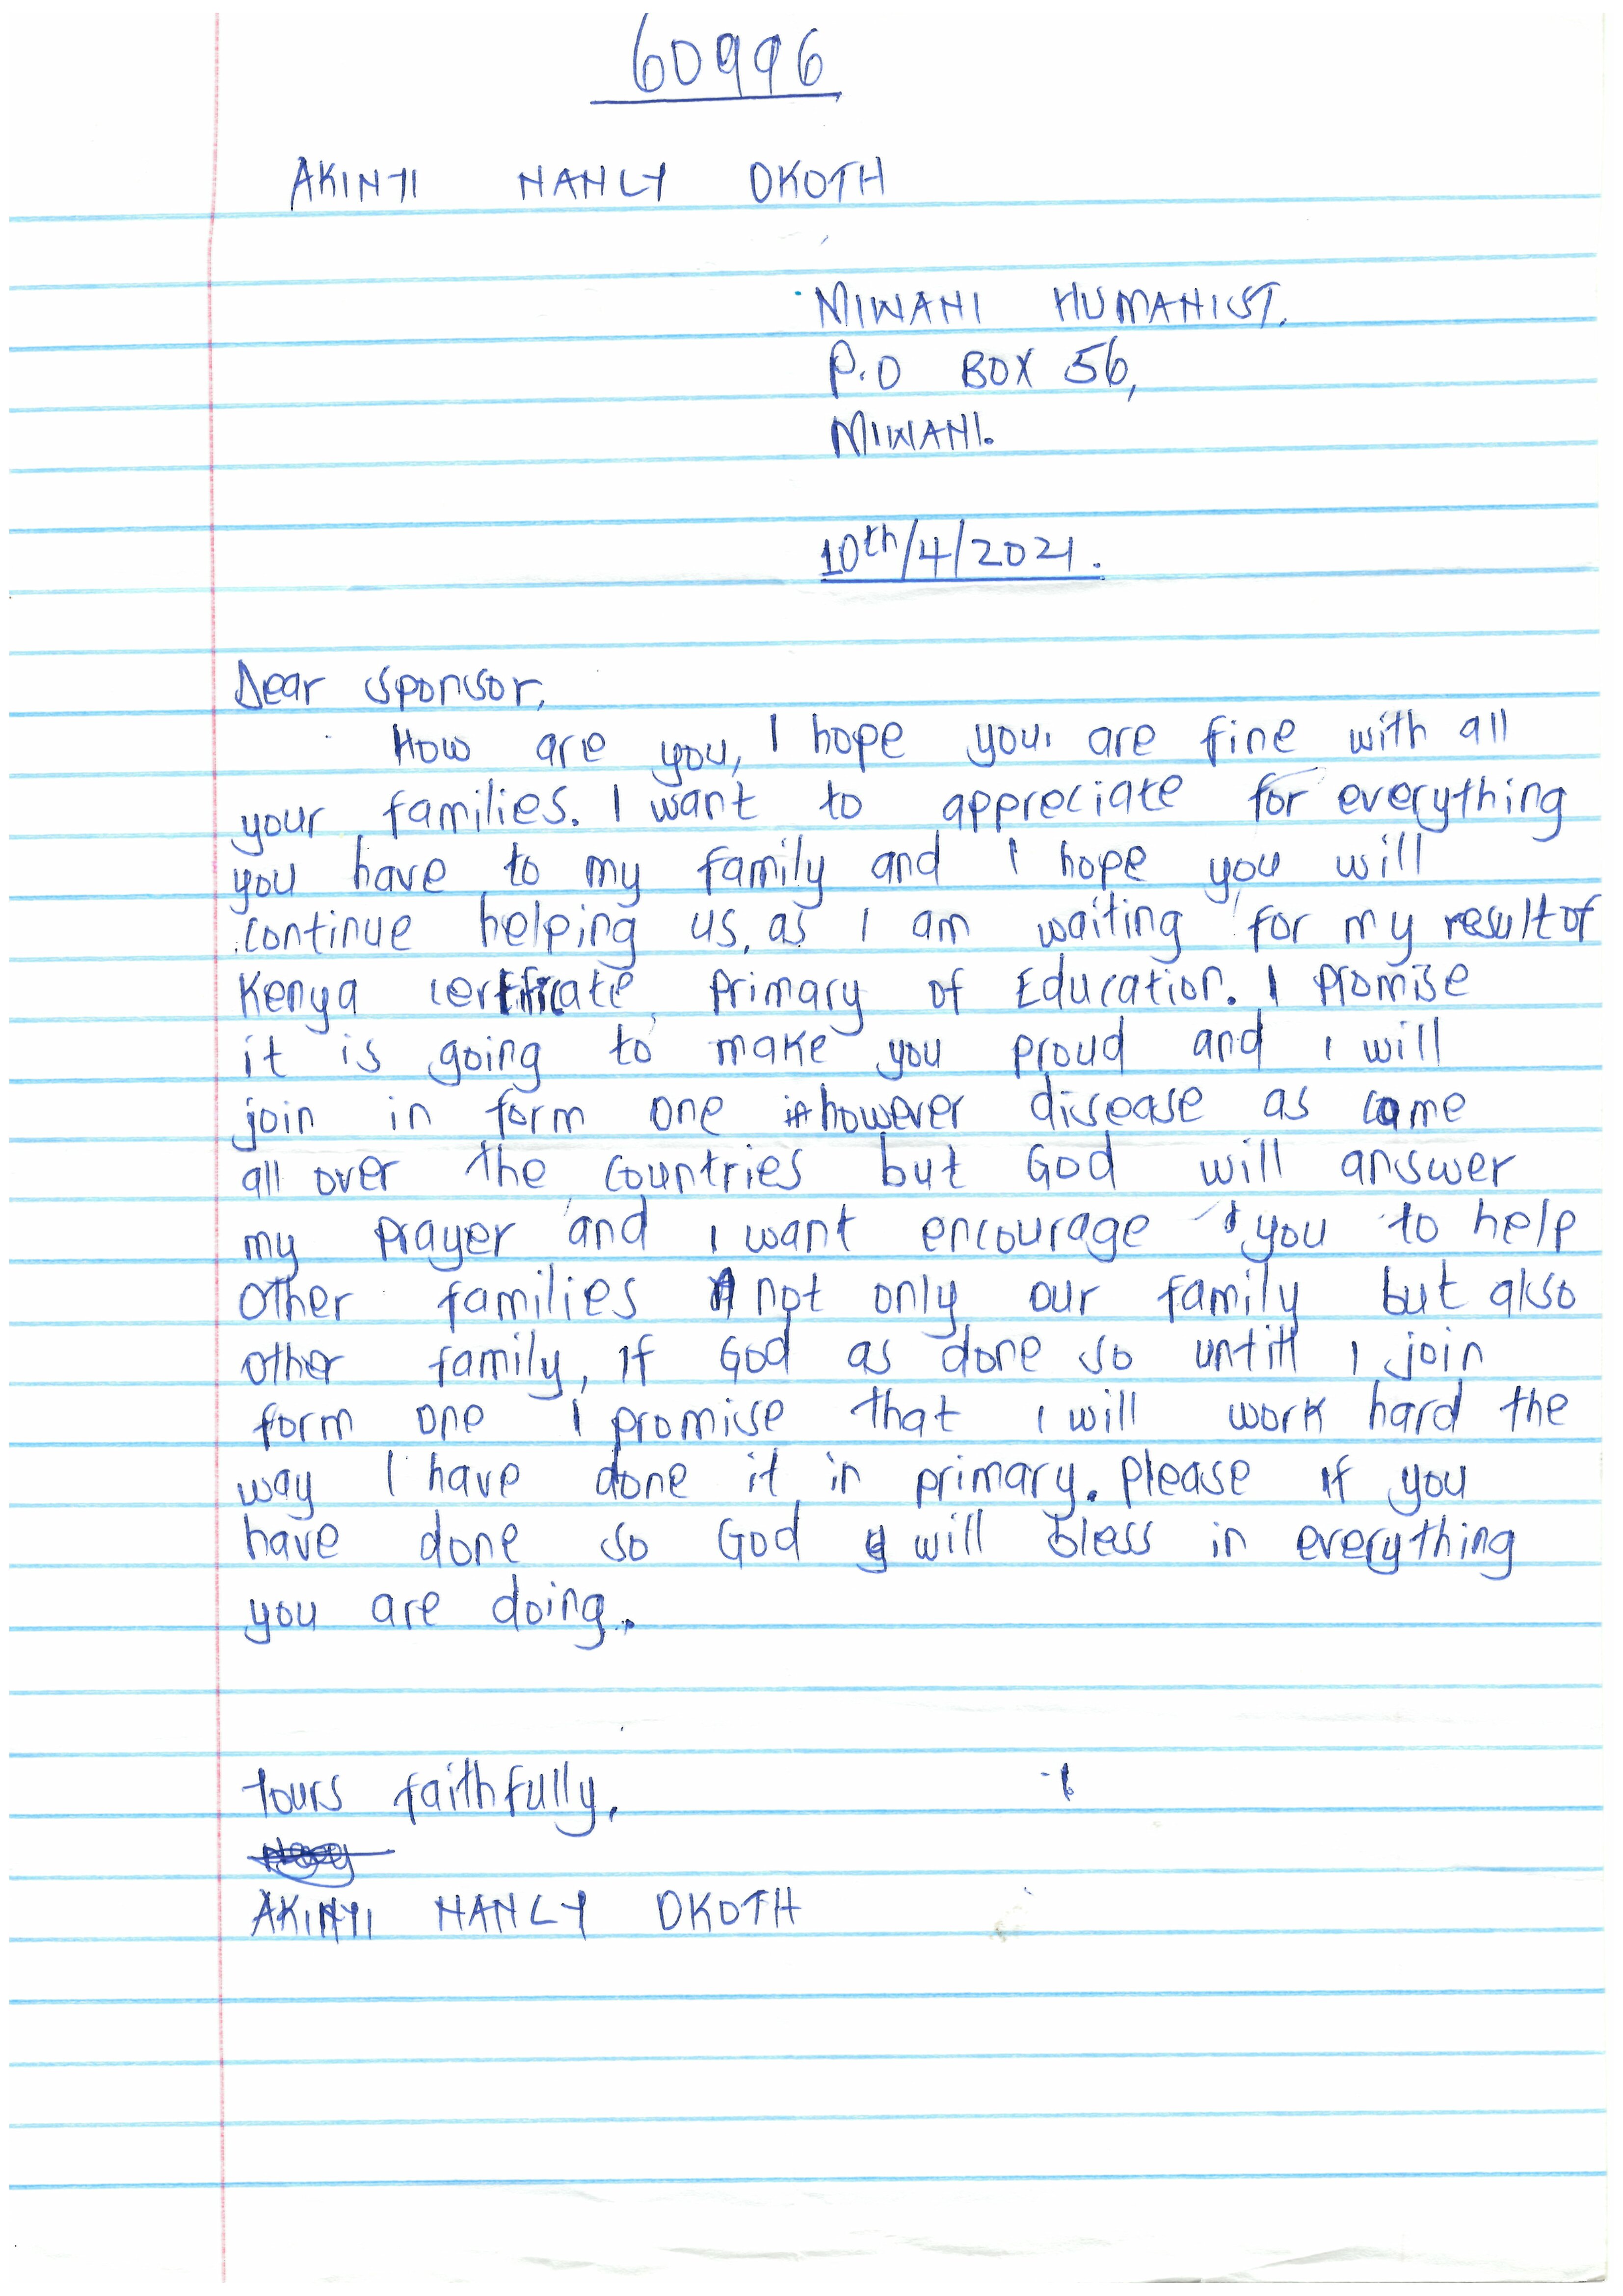 60996
AKINYI NANCY OKOTH
MIWANI HUMANIST.
P.O BOX 56,
MIWANI.
10th/4/2021.
Dear sponsor,
How are you, I hope you are fine with all
your families. I want to appreciate for everything
you have to my family and I hope you will
continue helping us, as I am waiting for my result of
Kenya certificate primary of Education. I promise
it is going to make you proud and I will
join in form one however disease as came
all over the countries but God will answer
my prayer and I want encourage you to help
other families not only our family but also
other family, If God as done so untill I join
form one I promise that I will work hard the
way I have done it in primary. Please if you
have done so God will bless in everything
you are doing.
Yours faithfully,
AKINYI NANCY OKOTH